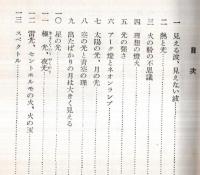 目次
一 見える波、見えない波
二 熱と光
三 火の粉の不思議
四 理想の燈火
五 光の強さ
六 アーク燈とネオンランプ
七 太陽の光、月の光
八 空の光と青空の理
九 出たばかりの月は大きく見える
一〇 星の光
一一 極光、夜光
一二 雷光、セントエルモの火、火の玉
一三 スペクトル